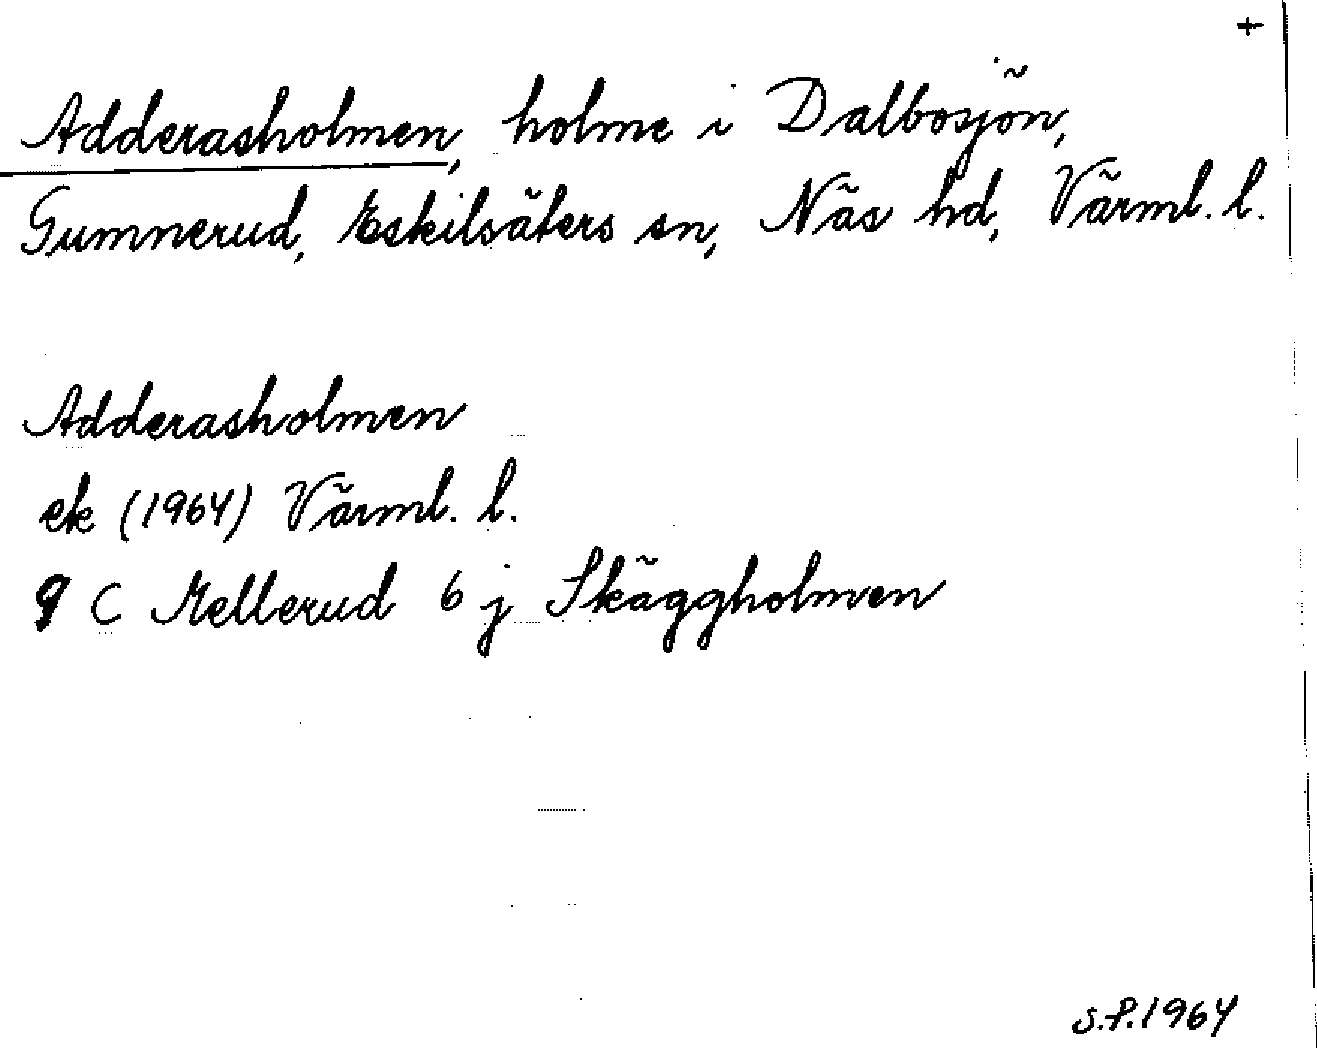 +
Adderasholmen, holme i Dalbosjön,
Gumnerud, Eskilsäters sn, Näs hd, Värml. l.
Adderasholmen
ek (1964) Värml. l.
9 C Mellerud 6 j Skäggholmen
S.P. 1964